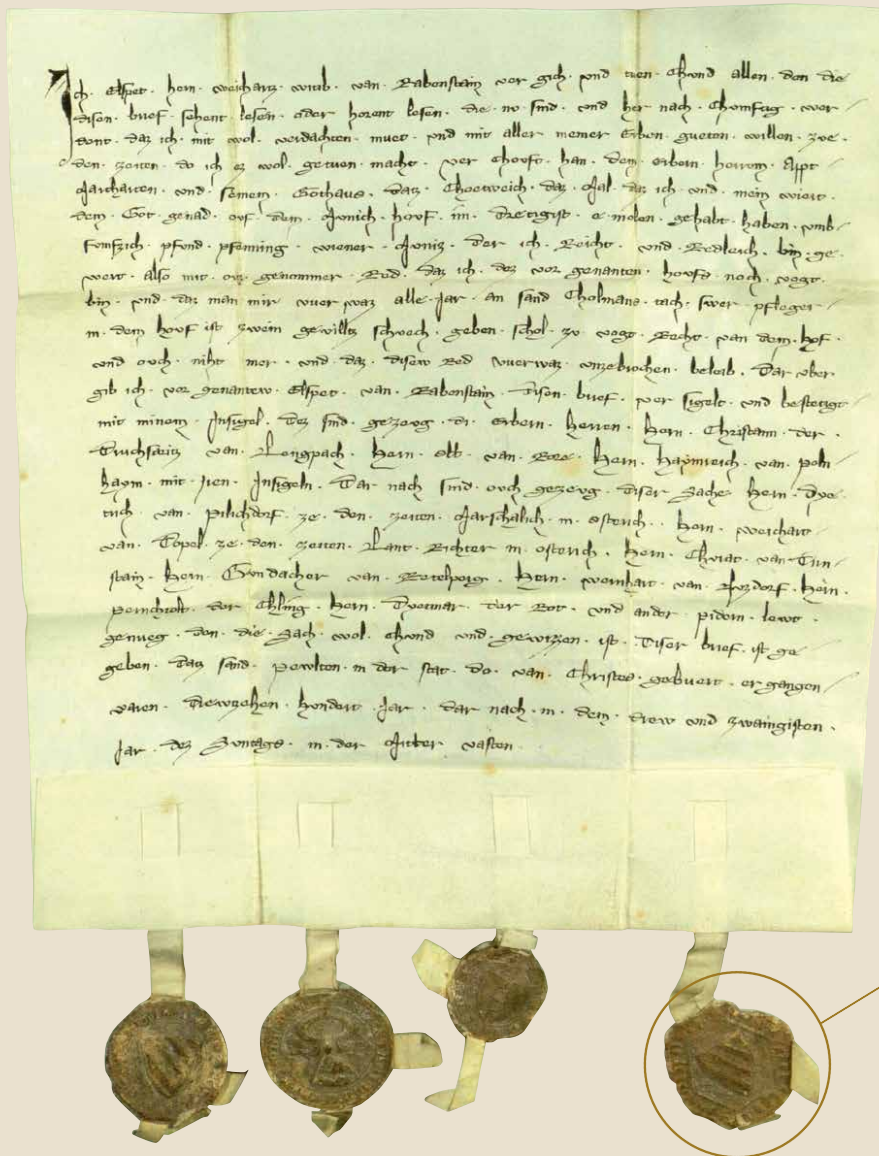 Ich · Elspet · hern · weichartz · wirib · van · Rabenstain · ver gich · vnd · tuen · Chund allen · den die
disen · brief · sehent lesen · oder horent lesen · die · nv · sind · vnd · her · nach · Chumftig · wer
dent · daz ich · mit · wol · verdachten · muet · vnd mit · aller meiner Erben · gueten · willen · ze
den · zeiten · do ich ez wol · getuen · macht · ver chouft · han · dem · erbern · herren · Appt
Marcharten · vnd · seinem · Gothaus · datz · Chotweich · daz · Mal · daz ich · vnd · mein wiert ·
dem · Got · genad · ovf · dem · Munich · hovf · im · dretzigist · e molen · gehabt · haben · vmb
fumfzich · pfund · pfenning · wiener · Muniz · der · ich · Reicht · vnd · Redleich · bin · ge
wert · also · mit · genommer · Red · daz ich · dez · vor · genanten · hovfs · noch · vogt ·
bin · vnd · daz · man mir vuer waz alle · Jar · an · sand Cholmans · tach · swer · pfleger
in · dem · hovf · ist · zwein · gewillig schuech · geben · schol · ze · vogt · Recht · van · dem · hof ·
vnd · ovch · niht · mer · vnd · daz · disew · Red · vuerwaz · vnzebrochen · beleib · Dar vber
gib ich · vor · genantew · Elspet · van · Rabenstain · disen · brief · ver sigelt · vnd · bestetigt
mit · minem · Insigel · Dez · sind · gezevg · di · Erbern · herren · hern · Christann · der ·
Truchsaetz · van · Lengpach · hern · Alb · van · Rore · hern · haymreich · van · poln
haym · mit · Iren · Insigeln · Dar · nach · sind · ovch · gezevg · diser Sache · hern · Dye
trich · van · pilichdorf · ze · den · zeiten · Marschalich · in · osterich · hern · weichart
van · Topel · ze · den · zeiten · Lant · Richter in · osterich · hern · Chvrat · van · Turn
stain · hern · Gundacher · van · Retelperg · hern · wernhart · van · Nuzdorf · hern ·
pernchtolt · der · Chling · hern · Dyetmar · der · Rot · vnd · ander · pidern · lewt ·
genueg · den · die · Sach · wol · chund · vnd · gewizzen · ist · Diser · brief · ist · ge
geben · datz · sand · pewlten · in · der · stat · do · van · Christes · gebuert · ergangen
waren · drewzehen · hundert · Jar · dar nach · in · dem · drew · vnd · zwaingisten ·
Jar · dez · Suntags · in · der · Mitter · vasten ·